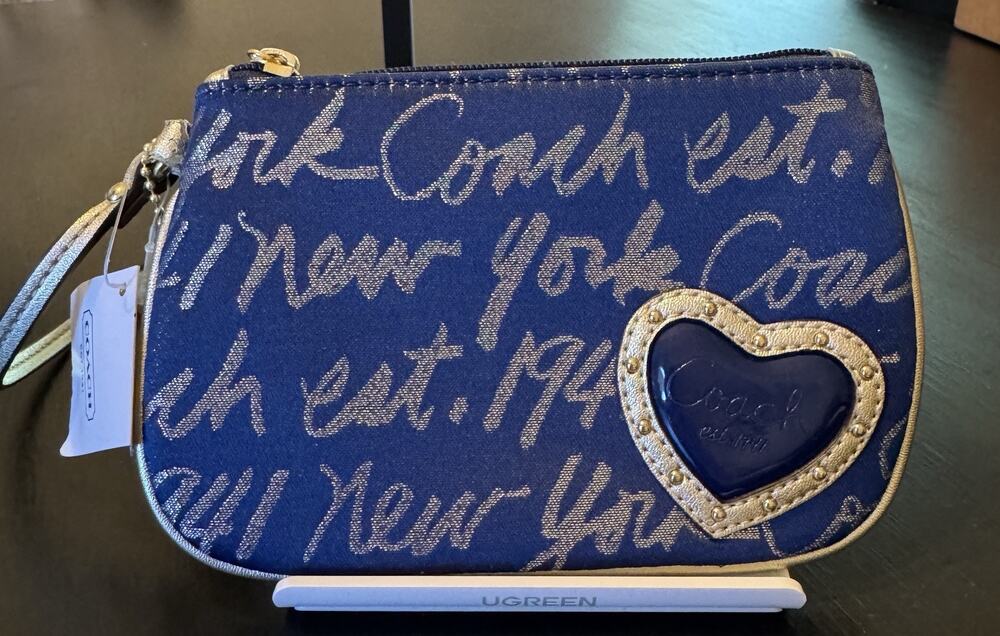 York Coach est.
41 New York Coac
ch est. 194
941 New York
Coach
est. 1941
COACH
UGREEN